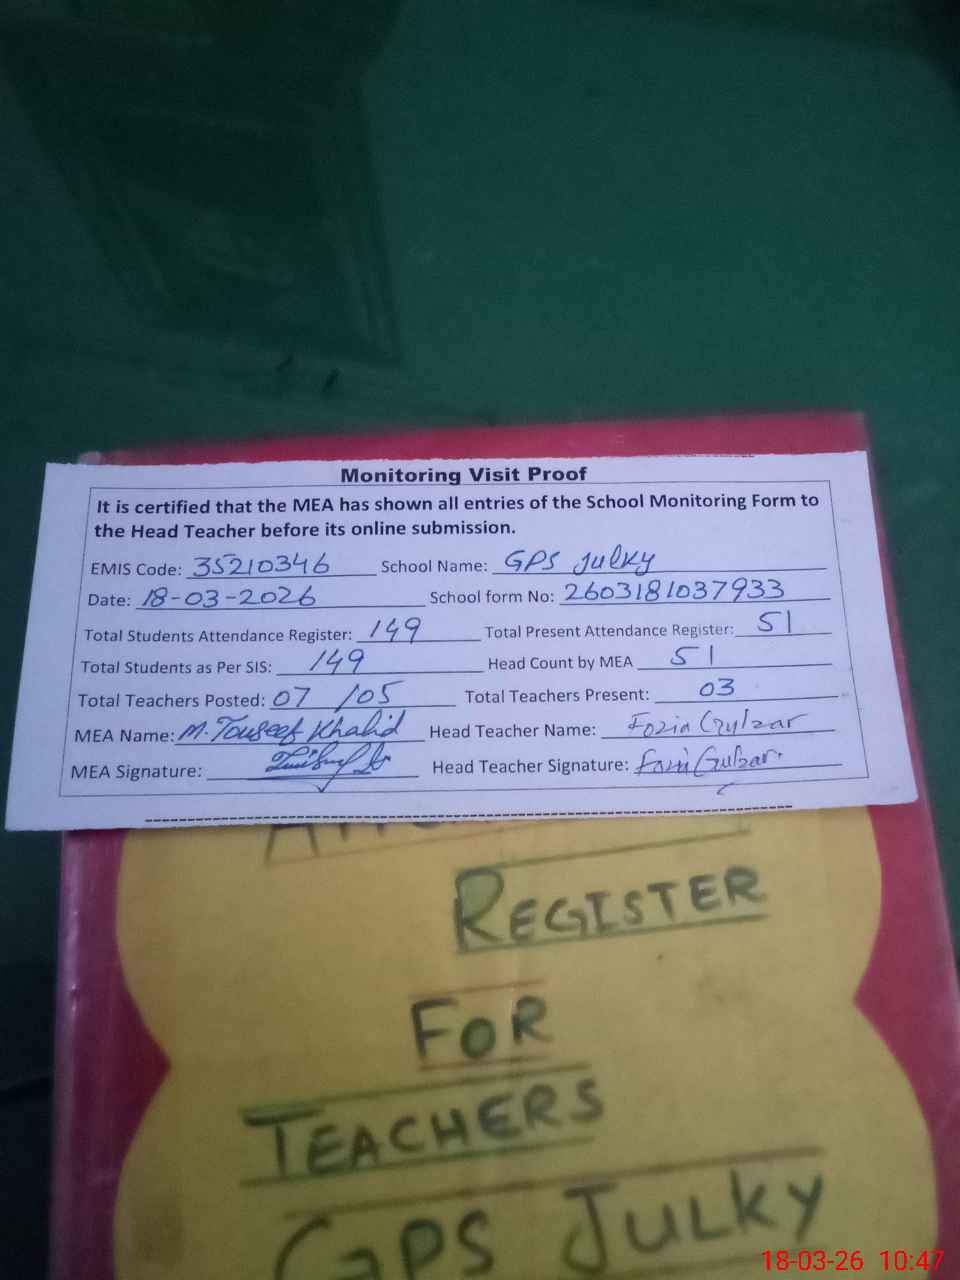 Monitoring Visit Proof
It is certified that the MEA has shown all entries of the School Monitoring Form to
the Head Teacher before its online submission.
EMIS Code: 35210346 School Name: GPS Julky
Date: 18-03-2026 School form No: 2603181037933
Total Students Attendance Register: 149 Total Present Attendance Register: 51
Total Students as Per SIS: 149 Head Count by MEA 51
Total Teachers Posted: 07 /05 Total Teachers Present: 03
MEA Name: M. Touseef Khalid Head Teacher Name: Fozia Gulzar
MEA Signature: Head Teacher Signature: Gulzar
REGISTER
FOR
TEACHERS
GPS JULKY
18-03-26 10:47